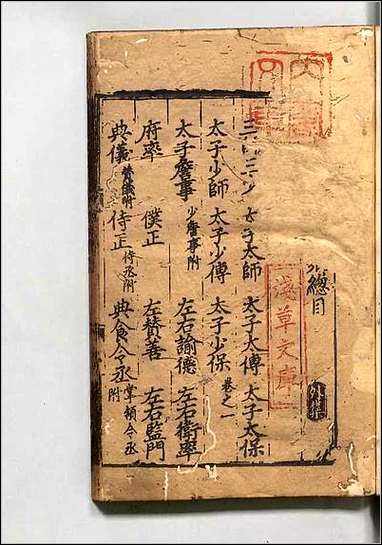 總目
外集
淺草文庫
卷之一
三師三少 太子太師 太子太傅 太子太保
太子少師 太子少傅 太子少保
太子詹事 少詹事附 左右諭德 左右衛率
府率 僕正 左贊善 左右監門
典儀 贊儀附 侍正 侍丞附 典食令丞 掌饍令丞附